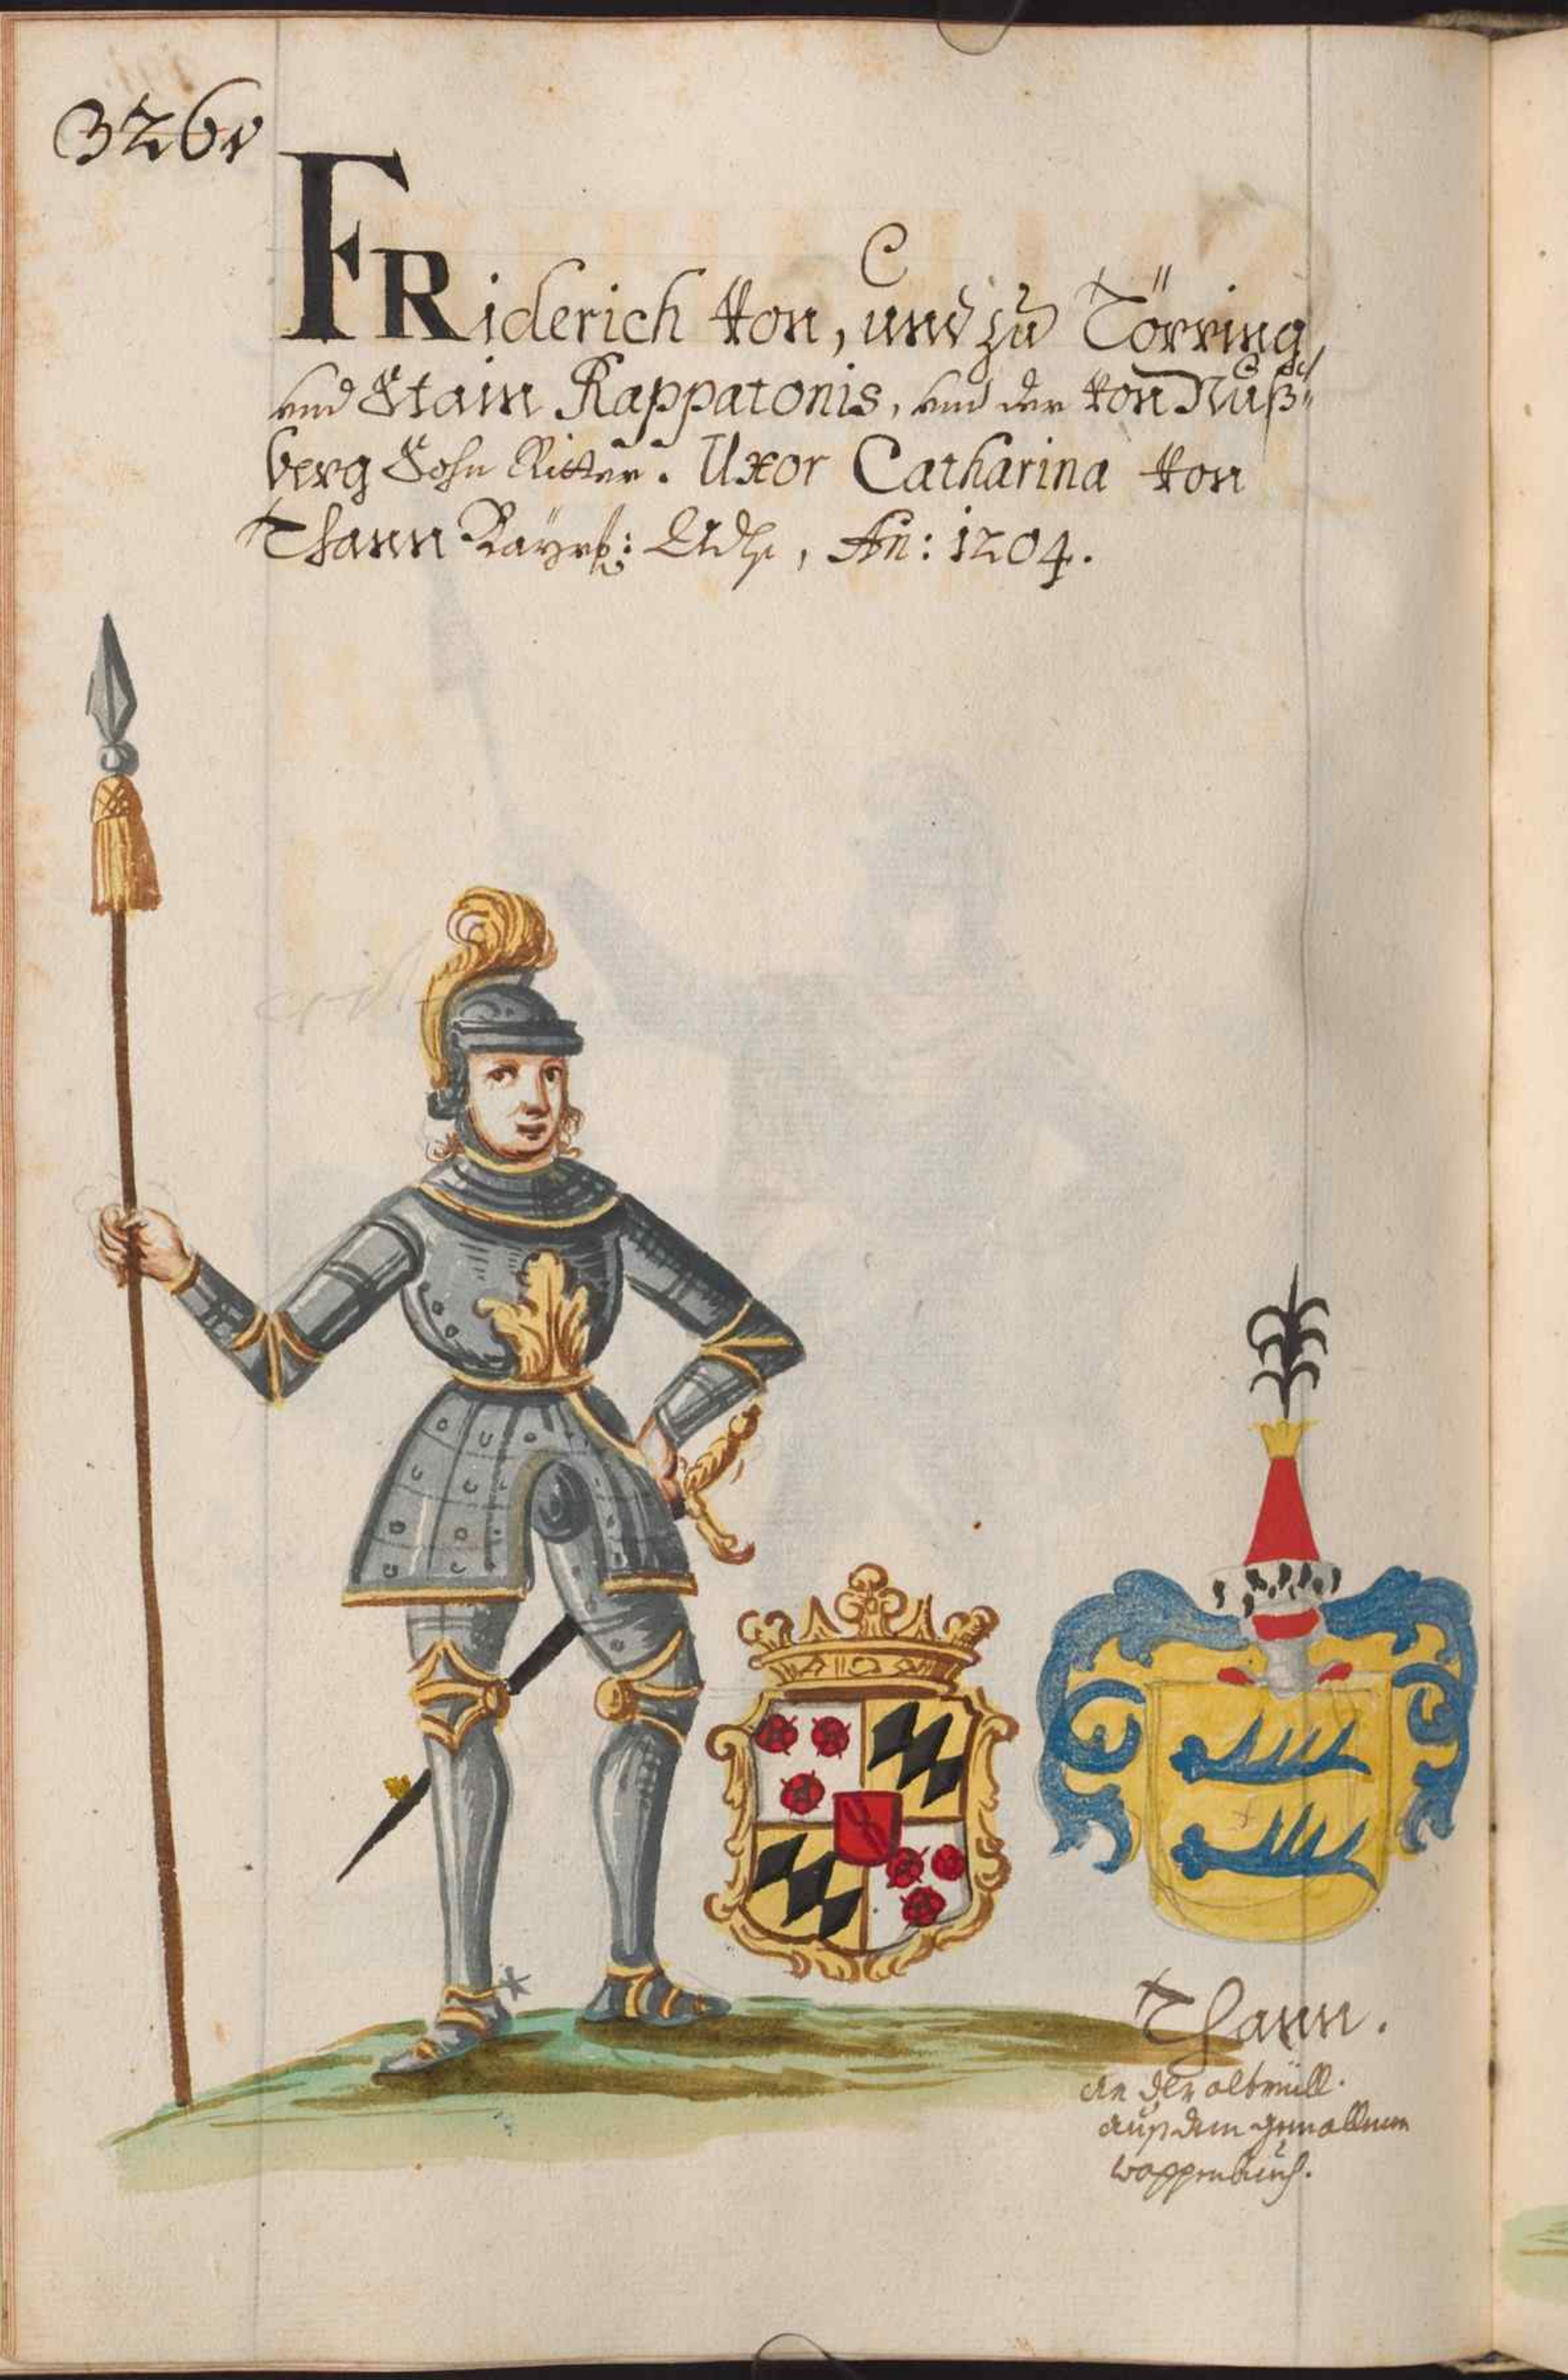 326v
FRiderich von, und zu Törring,
und Stain Rappatonis, und der von Nuß-
berg Sohn Ritter. Uxor Catharina von
Thann Bayrß: Adls, An: 1204.
Thann.
an der altmüll.
auß dem gemallnen
wappenbuch.